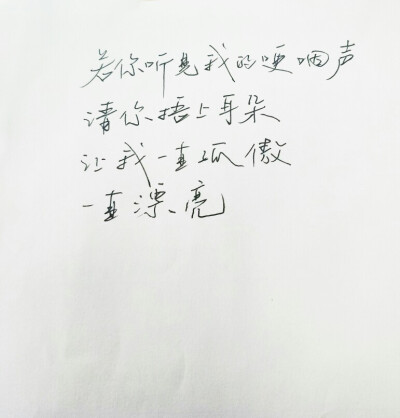 若你听见我的哽咽声
请你捂上耳朵
让我一直孤傲
一直漂亮